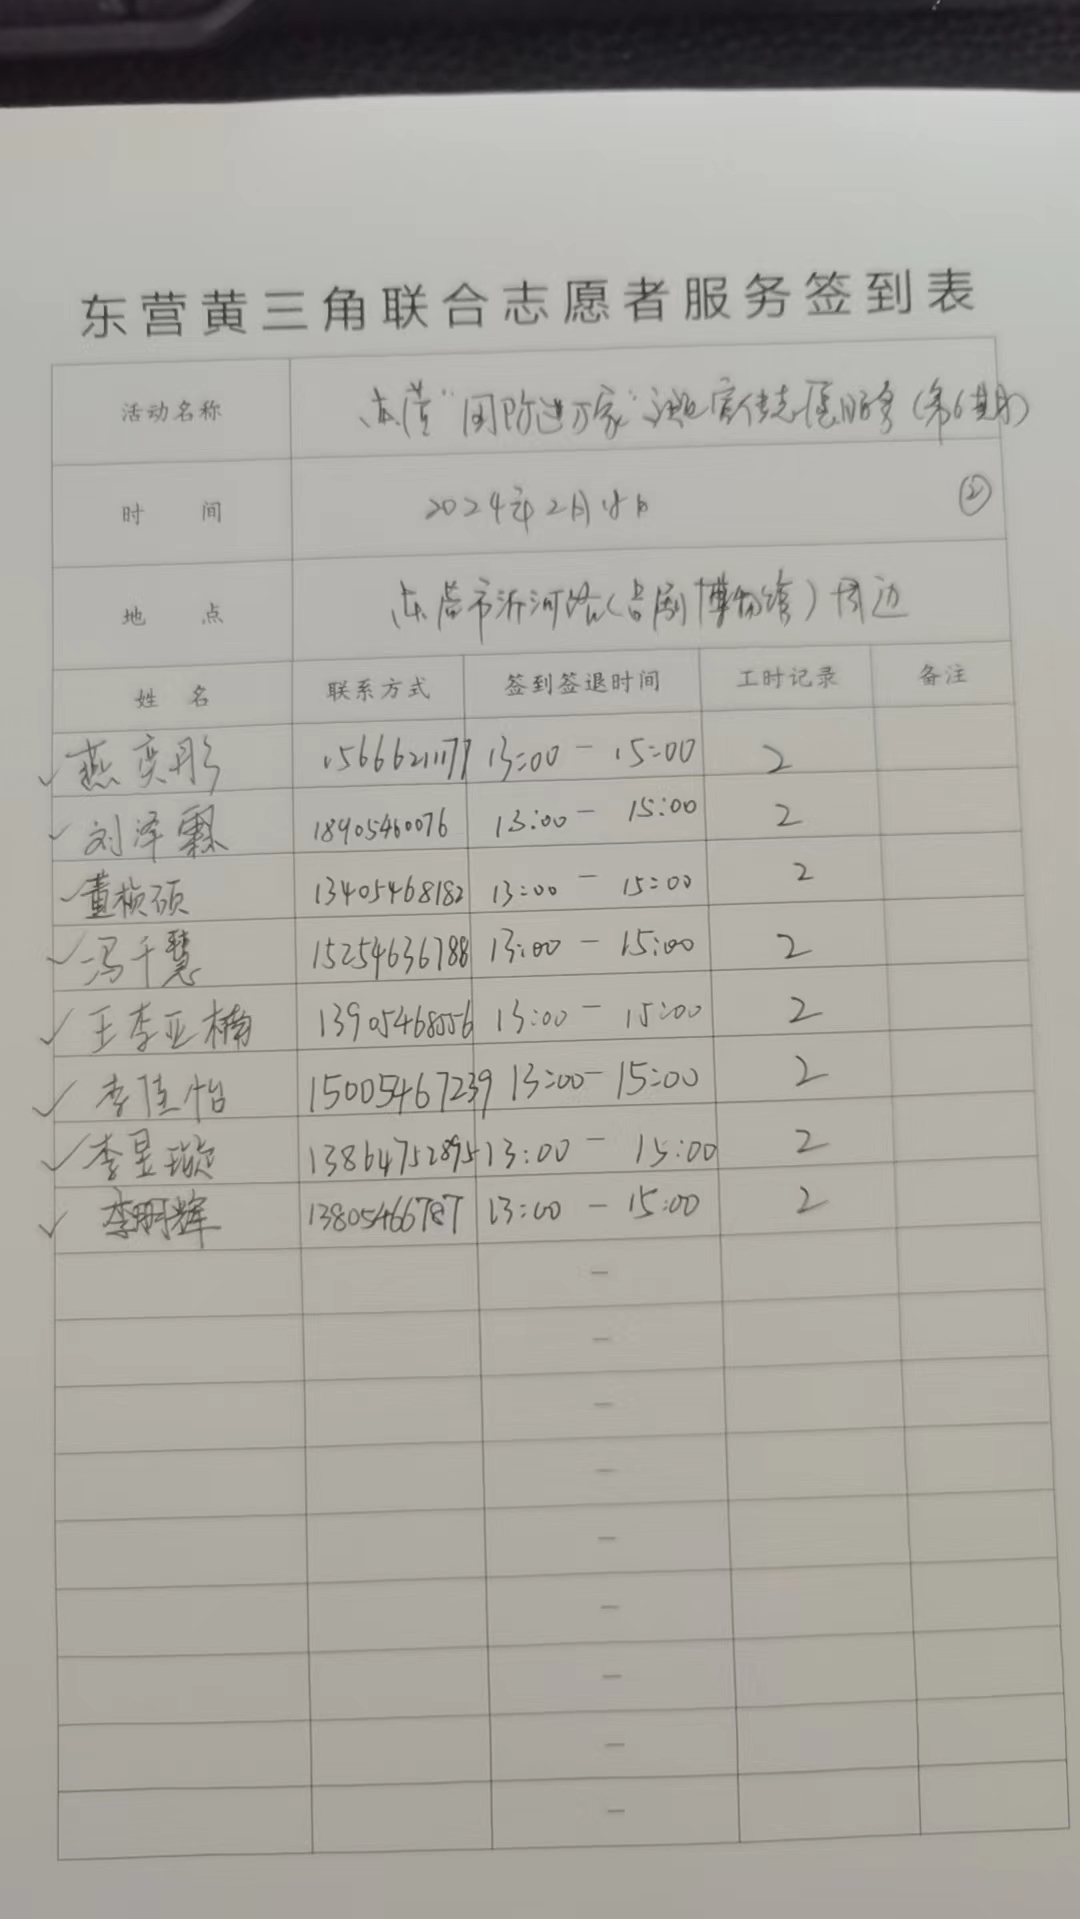 东营黄三角联合志愿者服务签到表
活动名称 东营“国防进万家”宣传志愿服务(第6期)
时 间 2024年2月 日 ②
地 点 东营市沂河路(吕剧博物馆)周边
姓 名 联系方式 签到签退时间 工时记录 备注
燕奕彤 15666211177 13:00 - 15:00 2
刘泽霖 18905460076 13:00 - 15:00 2
董桢硕 13405468182 13:00 - 15:00 2
冯千慧 15254636788 13:00 - 15:00 2
王李亚楠 13905468556 13:00 - 15:00 2
李佳怡 15005467239 13:00 - 15:00 2
李昱璇 13864752895 13:00 - 15:00 2
李明辉 13805466787 13:00 - 15:00 2
-
-
-
-
-
-
-
-
-